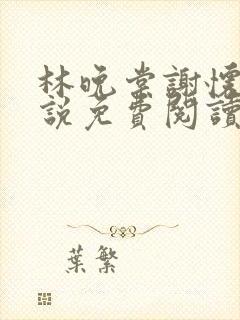 林晚棠謝懷
說免費閱讀
葉繁